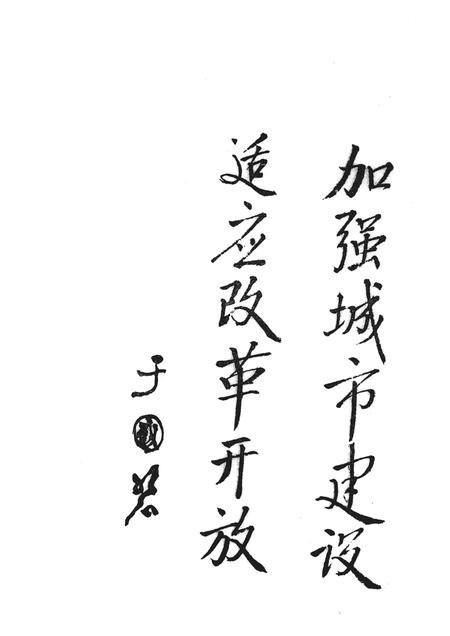 加强城市建设
适应改革开放
于